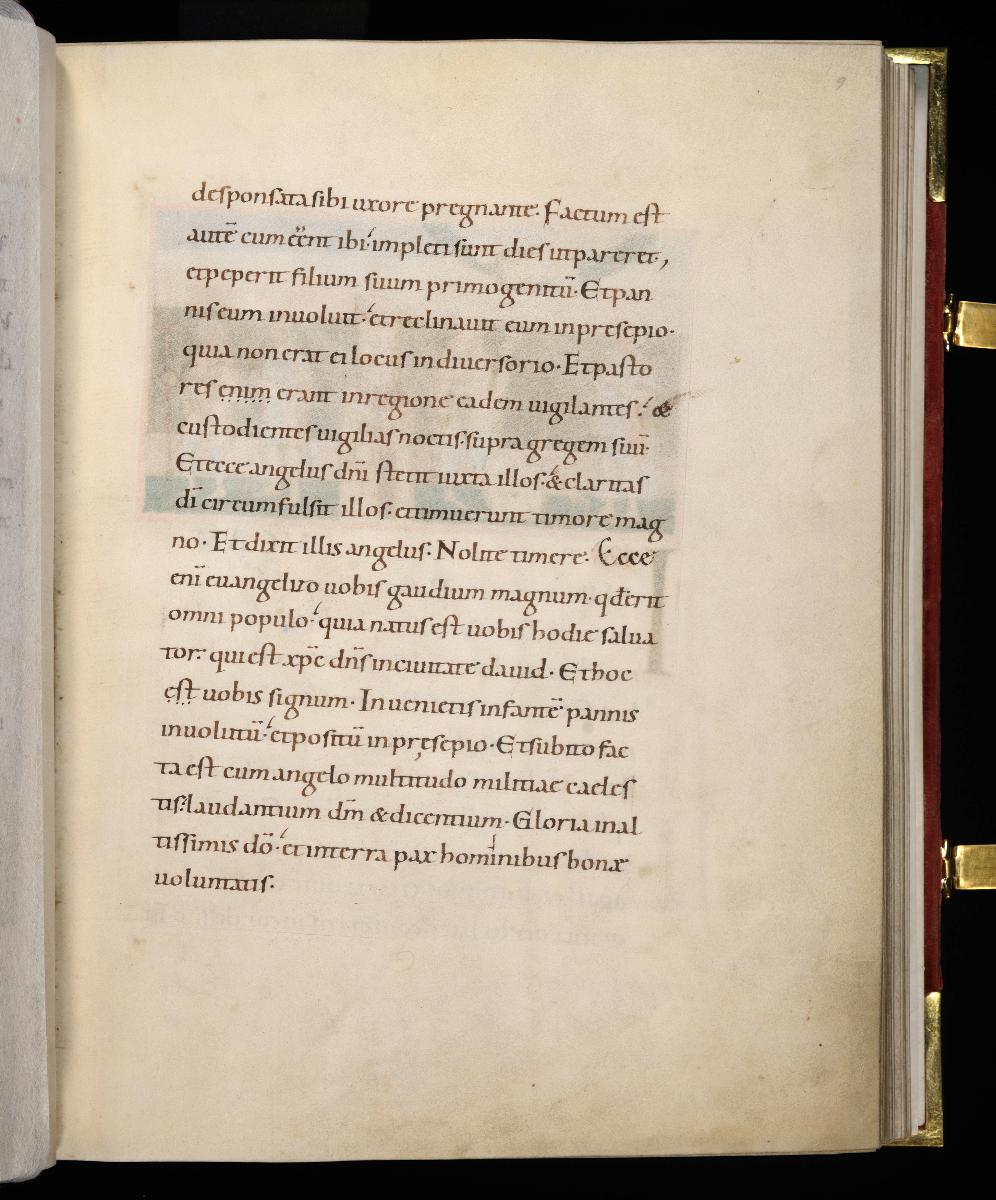 desponsata sibi uxore pregnante. Factum est
autē cum eēnt ibi. impleti sunt dies ut pareret,
et peperit filium suum primogenitū. Et pan
nis eum inuoluit. et reclinauit eum in presepio.
quia non erat ei locus in diuersorio. Et pasto
res enim erant in regione eadem uigilantes. &
custodientes uigilias noctis. supra gregem suū.
Et ecce angelus dn̄i stetit iuxta illos. & claritas
dī circumfulsit illos. et timuerunt timore mag
no. Et dixit illis angelus. Nolite timere. Ecce
enī euangelizo uobis gaudium magnum. qđ erit
omni populo. quia natus est uobis hodie salua
tor. qui est xp̄c dn̄s in ciuitate dauid. Et hoc
est uobis signum. Inuenietis infantē pannis
inuolutū. et positū in pręsepio. Et subito fac
ta est cum angelo multitudo militiae caeles
tis. laudantium dm̄ & dicentium. Gloria in al
tissimis dō. et in terra pax hominibus bonæ
uoluntatis.
9